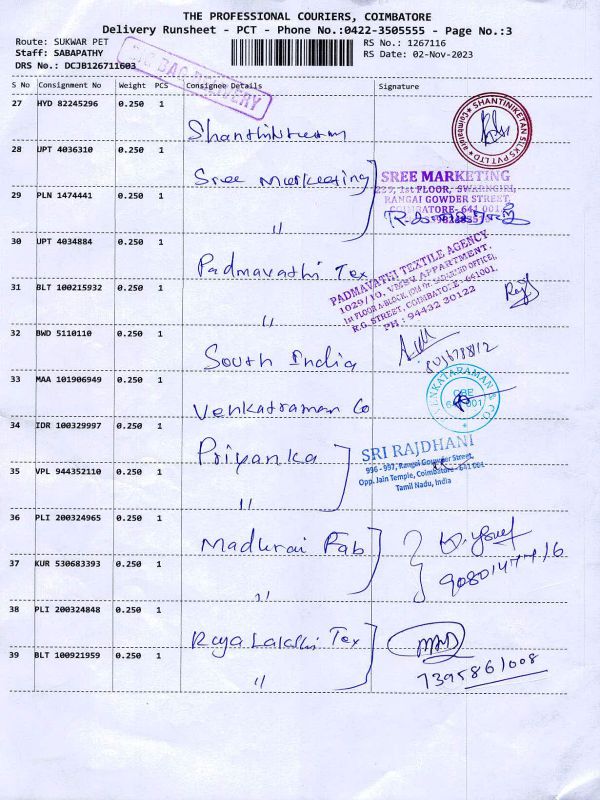 THE PROFESSIONAL COURIERS, COIMBATORE
Delivery Runsheet - PCT - Phone No.:0422-3505555 - Page No.:3
Route: SUKWAR PET
RS No.: 1267116
Staff: SABAPATHY
RS Date: 02-Nov-2023
DRS No.: DCJB126711603
S No Consignment No Weight PCS Consignee Details Signature
27 HYD 82245296 0.250 1
SHANTINIKETAN SILKS PVT LTD
Coimbatore
28 UPT 4036310 0.250 1 Sree Marketing
SREE MARKETING
239, 1st FLOOR, SWARNGIRI,
RANGAI GOWDER STREET,
COIMBATORE-641 001
29 PLN 1474441 0.250 1 "
30 UPT 4034884 0.250 1 Padmavathi Tex
PADMAVATHI TEXTILE AGENCY
1029/10, VMSV APPARTMENT,
1st FLOOR A-BLOCK,
R.G. STREET, COIMBATORE-641001.
PH : 94432 20122
31 BLT 100215932 0.250 1 "
32 BWD 5110110 0.250 1 South India
33 MAA 101906949 0.250 1 Venkatraman Co
VENKATARAMAN & CO
CBE
34 IDR 100329997 0.250 1 Priyanka
SRI RAJDHANI
996 - 997, Rangai Gowder Street,
Opp. Jain Temple, Coimbatore - 641 001
Tamil Nadu, India
35 VPL 944352110 0.250 1 "
36 PLI 200324965 0.250 1 Madurai Fab
37 KUR 530683393 0.250 1 "
38 PLI 200324848 0.250 1 Tex
39 BLT 100921959 0.250 1 "
7395861008